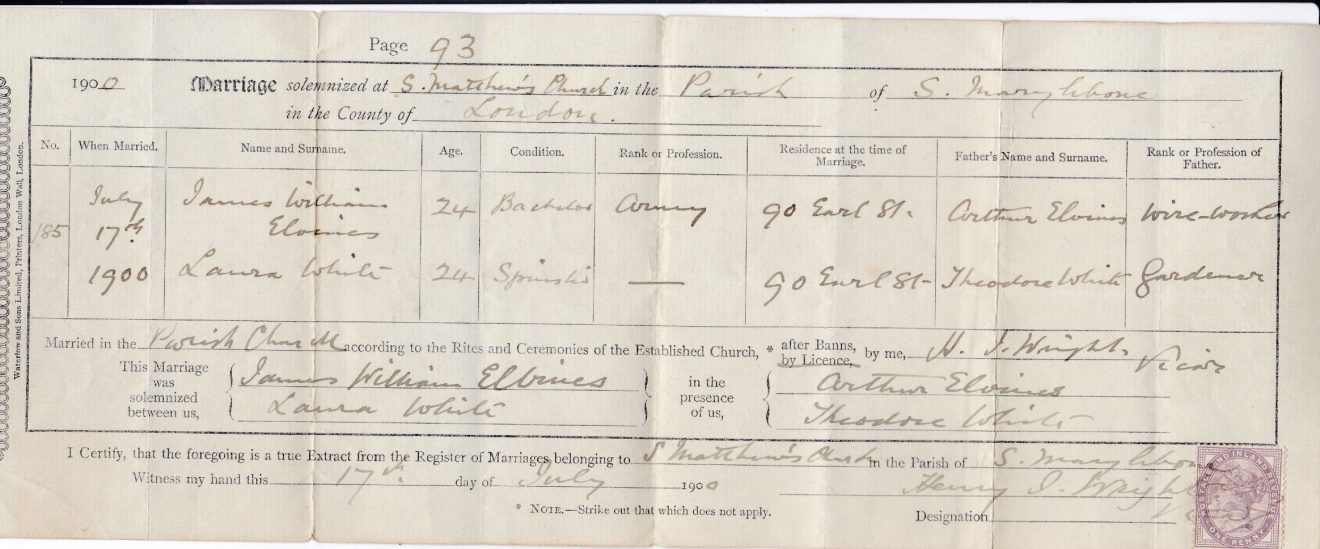 Page 93
1900 Marriage solemnized at S. Matthew's Church in the Parish of S. Marylebone
in the County of London.
No. When Married. Name and Surname. Age. Condition. Rank or Profession. Residence at the time of Marriage. Father's Name and Surname. Rank or Profession of Father.
185 July 17th 1900 James William Elvines 24 Bachelor Army 90 Earl St. Arthur Elvines Wire-worker
Laura White 24 Spinster — 90 Earl St- Theodore White Gardener
Married in the Parish Church according to the Rites and Ceremonies of the Established Church, * after Banns, by Licence, by me, H. J. Wright, Vicar
This Marriage was solemnized between us, James William Elvines Laura White in the presence of us, Arthur Elvines Theodore White
I Certify, that the foregoing is a true Extract from the Register of Marriages belonging to S Matthew's Church in the Parish of S. Marylebone
Witness my hand this 17th. day of July 1900 Henry J. Wright
* NOTE.—Strike out that which does not apply.
Designation
Waterlow and Sons Limited, Printers, London Wall, London.
POSTAGE AND INLAND REVENUE
ONE PENNY